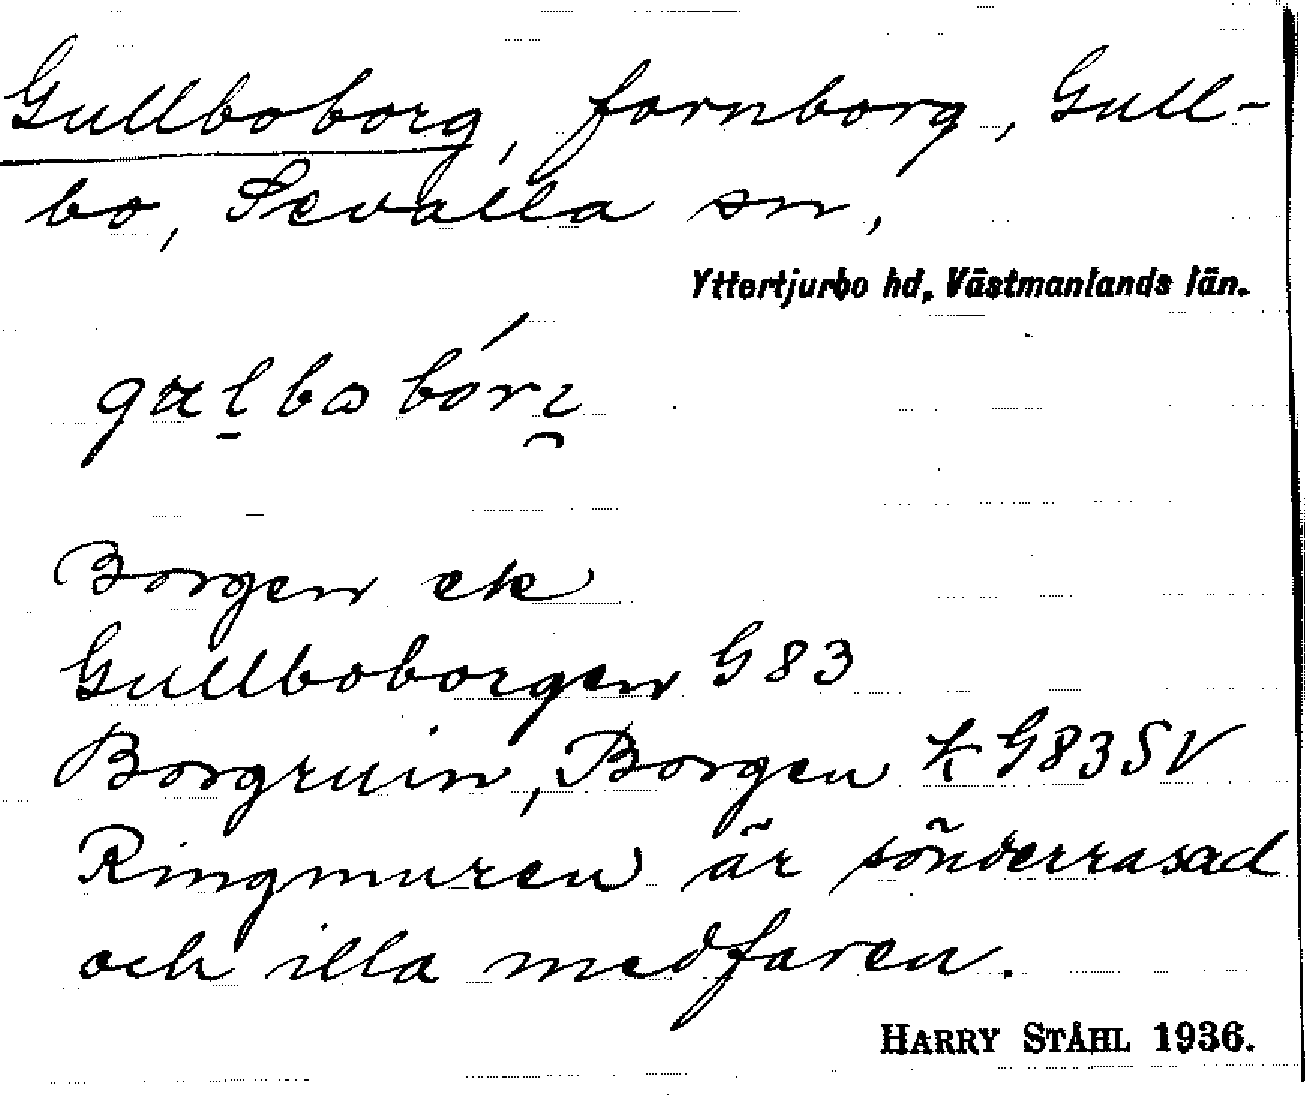 Gullboborg, fornborg, Gull-
bo, Sevalla sn,
Yttertjurbo hd, Västmanlands län.
Borgen ek
Gullboborgen G 83
Borgruin, Borgen k G 83 SV
Ringmuren är sönderrasad
och illa medfaren.
HARRY STÅHL 1936.